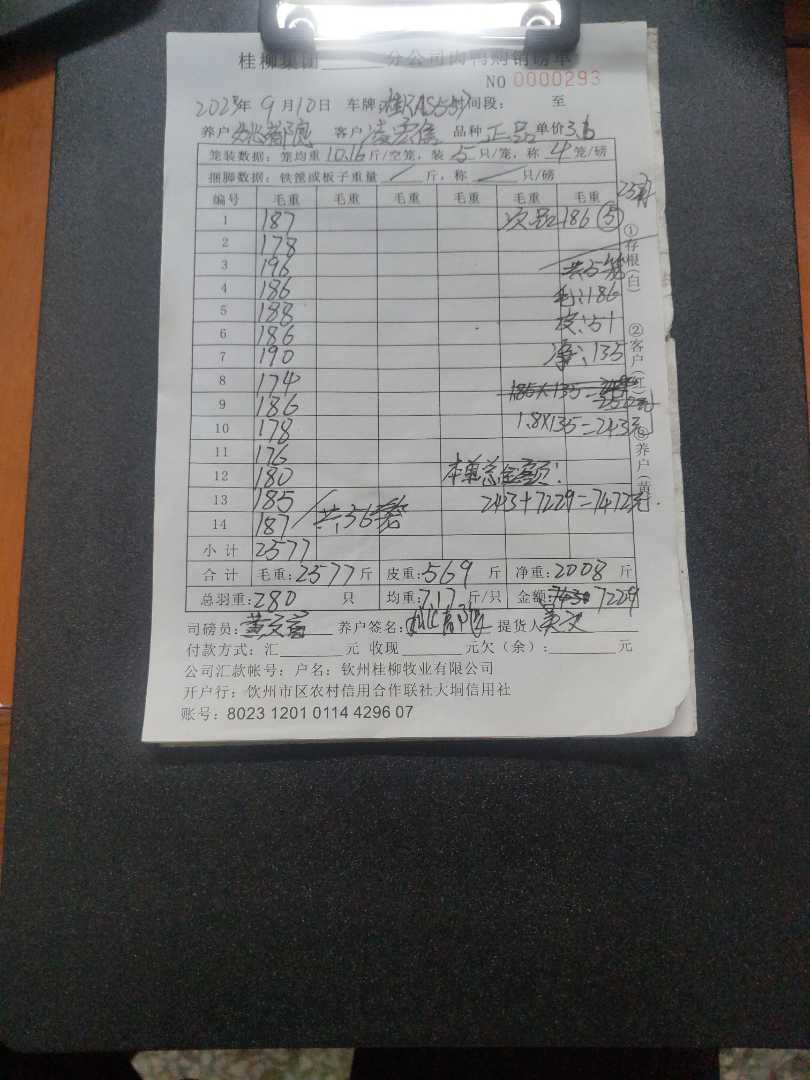 桂柳集团 分公司肉鸭购销磅单
NO 0000293
2025年9月10日 车牌: 间段: 至
养户 客户 品种 正品 单价3.6
笼装数据: 笼均重10.16斤/空笼, 装5只/笼, 称4笼/磅
捆脚数据: 铁篦或板子重量 / 斤, 称 / 只/磅
编号 毛重 毛重 毛重 毛重 毛重 毛重
1 187 次品:186 ⑤
2 178
3 196 共5笼
4 186 毛:186
5 188 皮:51
6 186 净:135
7 190
8 174
9 186
10 178 1.8×135=243元
11 176
12 180 本单总金额:
13 185 243+7229=7472元.
14 187 共56笼
小计 2577
合计 毛重:2577斤 皮重:569斤 净重:2008斤
总羽重:280 只 均重:7.17斤/只 金额: 7229
司磅员: 养户签名: 提货人
付款方式: 汇 元 收现 元欠(余): 元
公司汇款帐号: 户名: 钦州桂柳牧业有限公司
开户行: 钦州市区农村信用合作联社大垌信用社
账号: 8023 1201 0114 4296 07
①存根(白) ②客户(红) ③养户(黄)